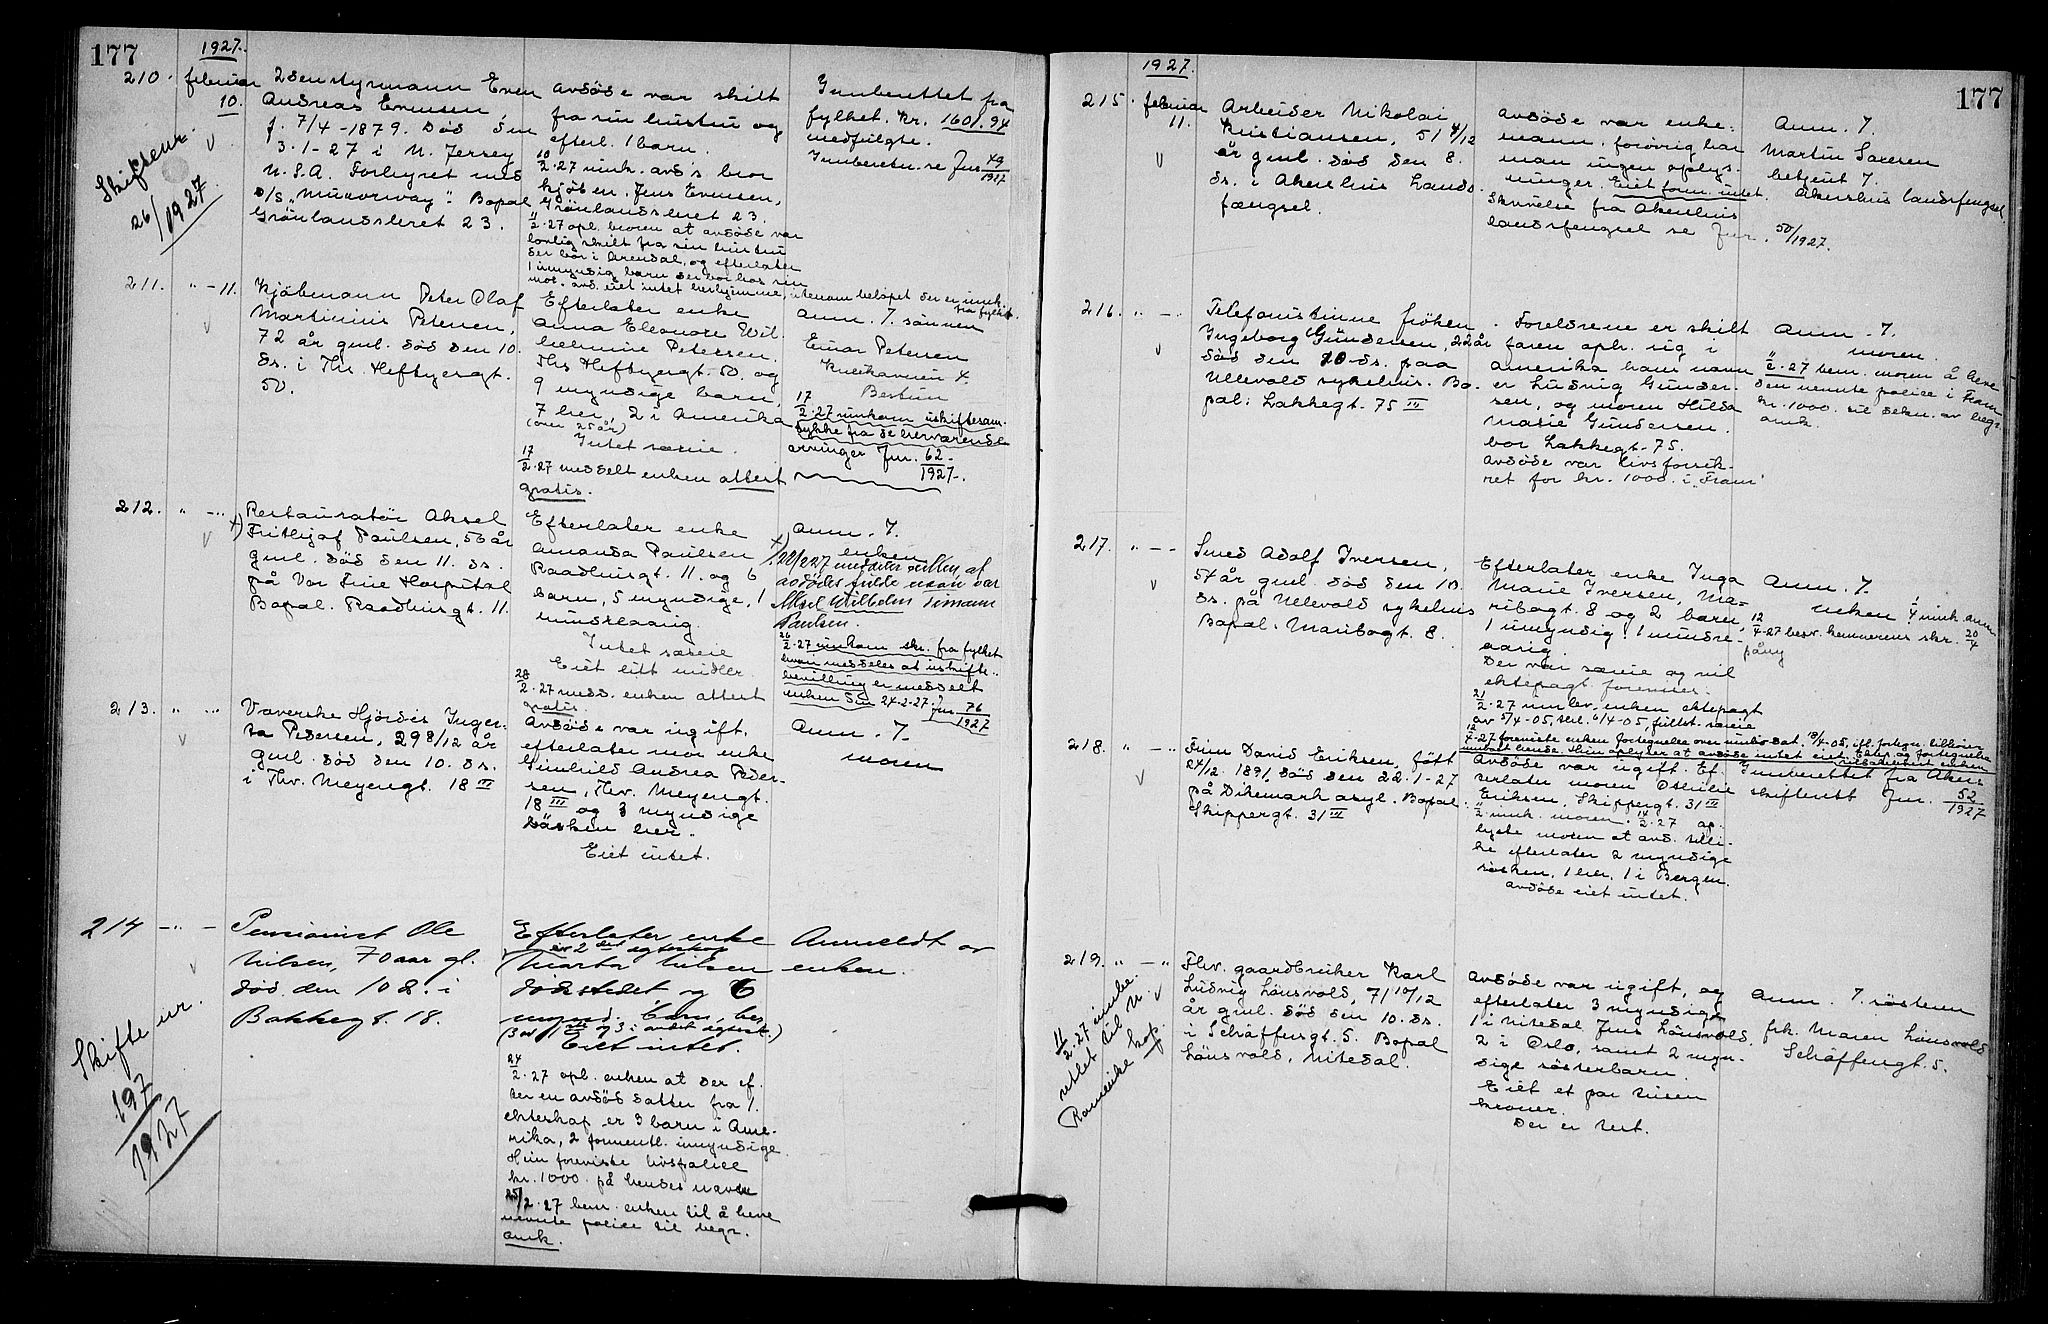 177
1927.
210. februar 2den styrmann Even
10. Andreas Evensen,
f. 7/4-1879. Död den
3.1-27 i N. Jersey
U.S.A. Forhyret med
Bopal
Grönlandsleret 23.
Skifteur.
26/1927
avdöde var skilt
fra sin hustru og
efterl. 1 barn.
10/2.27 innk. avd's bror
kjöbm. Jens Evensen,
Grönlandsleret 23.
11/2.27 opl. broren at avdöde var
lovlig skilt fra sin hustru
der bor i Arendal, og efterlater
1 umyndig barn der bor hos sin
mor. Avd. eiet intet herhjemme, utenom belöpet der er innk.
fra fylket.
Innberettet fra
fylket. Kr. 1601.94
medfulgte.
Innberetn. se Jnr 49/1927
211. " - 11. Kjöbmann Peter Olaf
Martinius Petersen,
72 år gml. död den 10.
ds. i Ths. Heftyesgt.
50.
Efterlater enke
Anna Eleonore Wil
helmine Petersen.
Ths Heftyesgt. 50. og
9 myndige barn,
7 her, 2 i Amerika
(over 25 år)
Intet særeie.
17/2.27 meddelt enken attest
gratis.
Anm. 7. sönnen
Einar Petersen
Bestum
17/2.27 innkom uskiftesam-
tykke fra de herværende
arvinger Jnr. 62/1927.
212. " - " Restauratör Aksel
x) Frithjof Paulsen, 56 år
gml. död den 11. ds.
på Vor Frue Hospital
Bopal. Raadhusgt. 11.
Efterlater enke
Amanda Paulsen
Raadhusgt. 11. og 6
barn, 5 myndige, 1
mindreaarig.
Intet særeie
Eiet litt midler.
28/2.27 medd. enken attest
gratis.
Anm. 7.
enken
x) 22/2 27 meddeler enken at
avdödes fulde navn var
Aksel Wilhelm Timann
Paulsen.
26/2.27 innkom skr. fra fylket
hvori meddeles at uskifte-
bevilling er meddelt
enken den 24-2-27. Jnr 76/1927
213. " - " Væverske Hjördis Inger-
da Pedersen, 29 8/12 år
gml. död den 10. ds.
i Thv. Meyersgt. 18 III
Avdöde var ugift,
efterlater mor enke
Gunhild Andrea Peder-
sen, Thv. Meyersgt.
18 III og 3 myndige
sösken her.
Eiet intet.
Anm. 7.
moren
214 - " - Pensionist Ole
Nilsen, 70 aar gl.
död den 10 d. i
Bakkegt. 18.
Skifte ur.
197/1927
Efterlater enke
av 2det egteskap
Marta Nilsen
dödstedet og 6
mynd. barn, her
Eiet intet.
24/2.27 opl. enken at der ef-
ter en avdöd datter fra 1.
ekteskap er 3 barn i Ame-
rika, 2 formentl. umyndige.
Hun foreviste livspolice
kr. 1000 på hendes navn
25/2.27 bem. enken til å heve
nevnte police til begr.
omk.
Anmeldt av
enken.
177
1927.
215. februar Arbeider Nikolai
11. Kristiansen, 51 4/12
år gml. död den 8.
ds. i Akershus Lands-
fængsel.
Avdöde var enke-
mann, forövrig har
man ingen oplys-
ninger. Eiet form. intet.
Skrivelse fra Akershus
landsfengsel se Jnr. 50/1927.
Anm. 7.
Martin Saxesen
betjent 7.
Akershus landsfengsel
216. " - " Telefonistinne fröken
Ingeborg Gundersen, 22 år
död den 10 ds. paa
Ullevold sykehus. Bo-
pal: Lakkegt. 75 III
Foreldrene er skilt
faren oph. sig i
Amerika hans navn
er Ludvig Gunder-
sen, og moren Hilda
Marie Gundersen.
bor Lakkegt. 75.
Avdöde var livsforsik-
ret for kr. 1000. i "Fram"
Anm. 7.
moren.
11/2.27 bem. moren å heve
den nevnte police i Fram
kr. 1000 til dekn. av begr.
omk.
217. " - " Smed Adolf Iversen,
54 år gml. död den 10.
ds. på Ullevold sykehus
Bopal. Maribogt. 8.
Efterlater enke Inga
Marie Iversen, Ma-
ribogt. 8 og 2 barn,
1 umyndig 1 mindre-
aarig.
Der var særeie og vil
ektepagt forevises.
21/2.27 innlev. enken ektepagt
av 5/4-05, tkl. 6/4-05, fullst. særeie
12/4-27 foreviste enken fortegnelse over innbo dat. 18/4-05, ifl. fortegn. tilhörer
innbolt hende. Hun oplyser at avdöde intet eiet. Ektep. og fortegnelse
tilbakelevert enken
Anm. 7.
enken 1/4 innk. anm
12/4-27 besv. kemnerens skr. 20/4
påny
218. " - " Finn David Eriksen, född
24/12. 1891, död den 22.1-27
på Dikemark asyl. Bopal.
Skippergt. 31 III
Avdöde var ugift. Ef-
terlater moren Ottilie
Eriksen, Skippergt. 31 III
11/2 innk. moren. 14/2.27 op-
lyste moren at avd. tilli-
ke efterlater 2 myndige
söskèn, 1 her, 1 i Bergen.
avdöde eiet intet.
Innberettet fra Akers
skifterett Jnr. 52/1927
219. " - " Fhv. gaardbruker Karl
Ludvig Lönsvold, 71 10/12
år gml. död den 10. ds.
i Schäffersgt. 5. Bopal
Lönsvold, Nitedal.
11/2.27 innbe-
rettet til N.
Romerike
Avdöde var ugift, og
efterlater 3 myndige
1 i Nitedal Jens Lönsvold,
2 i Oslo, samt 2 myn-
dige sösterbarn.
Eiet et par tusen
kroner.
Der er test.
Anm. 7. söstern
frk. Maren Lönsvold
Schäffersgt. 5.